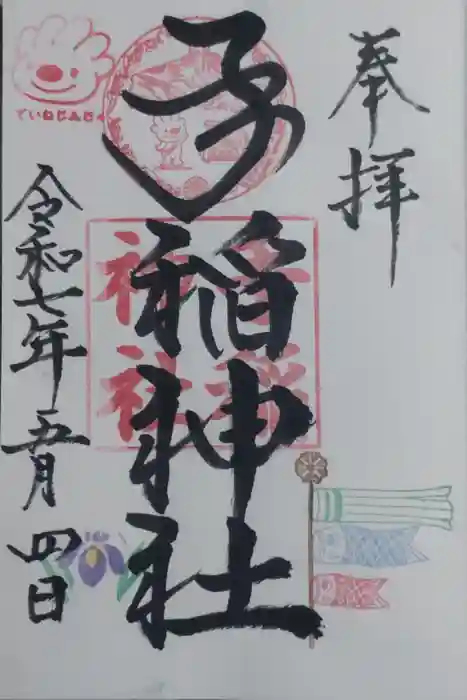 奉拝
手稲神社
手稲
神社
ていねじんじゃ
令和七年五月四日